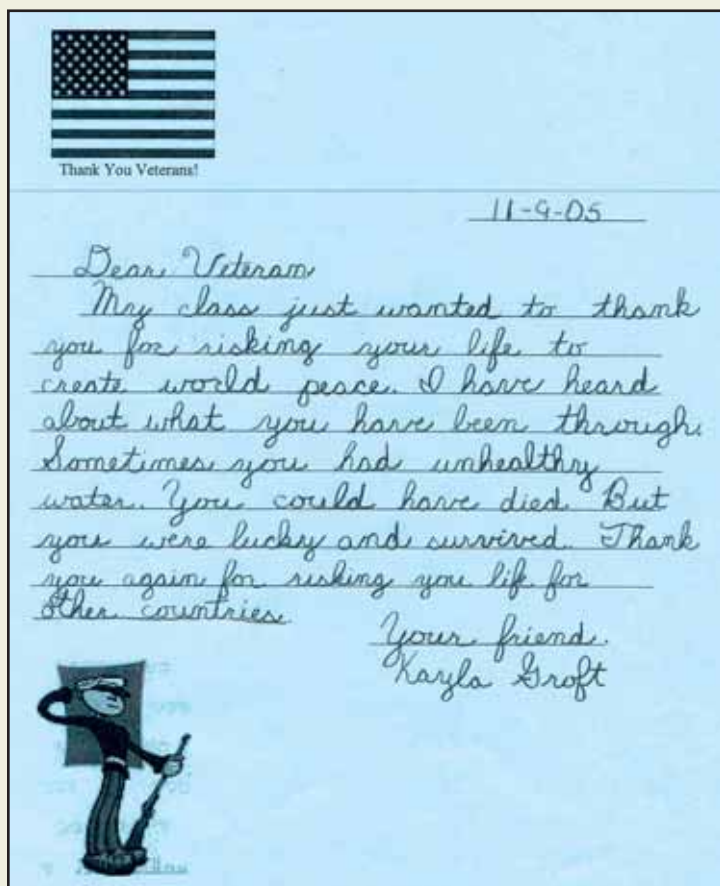 Thank You Veterans!
11-9-05
Dear Veteran
My class just wanted to thank
you for risking your life to
create world peace. I have heard
about what you have been through.
Sometimes you had unhealthy
water. You could have died. But
you were lucky and survived. Thank
you again for risking you life for
other countries.
Your friend.
Kayla Groft